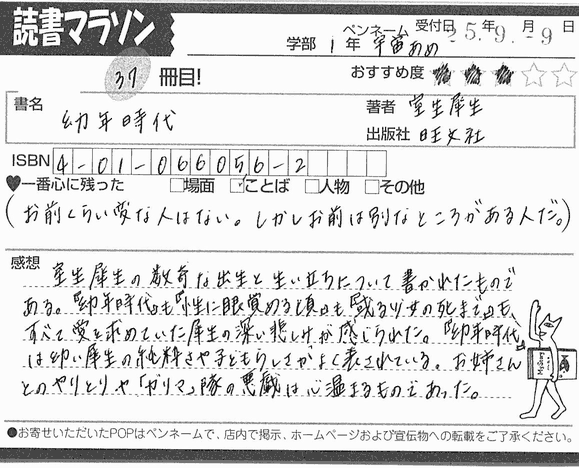 読書マラソン
学部 1年 ペンネーム 宇宙あめ 受付日 25年9月-9日
37 冊目!
おすすめ度 ★★★☆☆
書名 幼年時代
著者 室生犀生
出版社 旺文社
ISBN 4-01-066056-2
♥一番心に残った □場面 ☑ことば □人物 □その他
(お前くらい変な人はない。しかしお前は別なところがある人だ。)
感想
室生犀生の数奇な出生と生い立ちについて書かれたもので
ある。『幼年時代』も『性に眼覚める頃』も『或る少女の死まで』も、
すべて愛を求めていた犀生の深い悲しけが感じられた。『幼年時代』
は幼い犀生の純粋さや子どもらしさがよく表されている。お姉さん
とのやりとりや「ガリマ」隊の悪戯は心温まるものであった。
●お寄せいただいたPOPはペンネームで、店内で掲示、ホームページおよび宣伝物への転載をご了承ください。